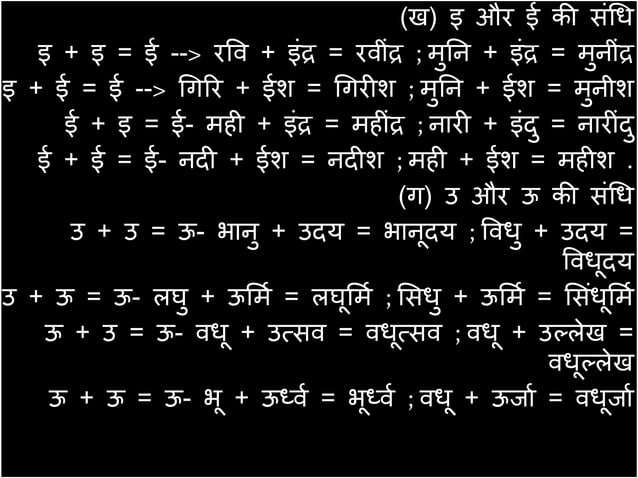 (ख) इ और ई की संधि
इ + इ = ई --> रवि + इंद्र = रवींद्र ; मुनि + इंद्र = मुनींद्र
इ + ई = ई --> गिरि + ईश = गिरीश ; मुनि + ईश = मुनीश
ई + इ = ई- मही + इंद्र = महींद्र ; नारी + इंदु = नारींदु
ई + ई = ई- नदी + ईश = नदीश ; मही + ईश = महीश .
(ग) उ और ऊ की संधि
उ + उ = ऊ- भानु + उदय = भानूदय ; विधु + उदय =
विधूदय
उ + ऊ = ऊ- लघु + ऊर्मि = लघूर्मि ; सिधु + ऊर्मि = सिंधूर्मि
ऊ + उ = ऊ- वधू + उत्सव = वधूत्सव ; वधू + उल्लेख =
वधूल्लेख
ऊ + ऊ = ऊ- भू + ऊर्ध्व = भूर्ध्व ; वधू + ऊर्जा = वधूर्जा